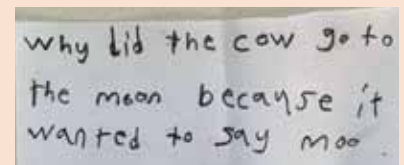 Why did the cow go to
the moon because it
wanted to say moo.